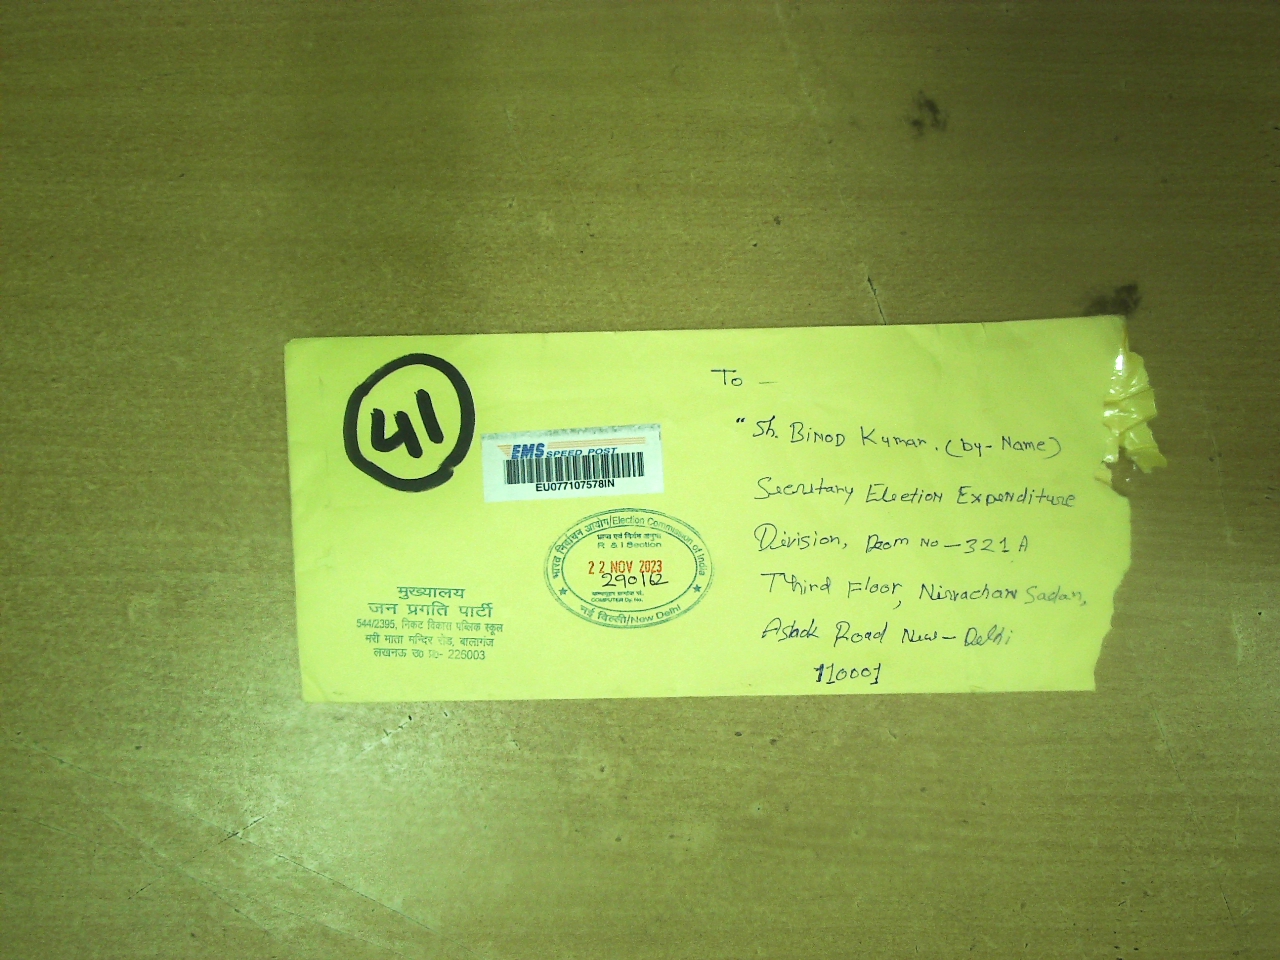 41
EMS SPEED POST
EU077107578IN
भारत निर्वाचन आयोग/Election Commission of India
प्राप्त एवं निर्गम अनुभाग
R & I Section
22 NOV 2023
290162
COMPUTER Dy. No.
नई दिल्ली/New Delhi
मुख्यालय
जन प्रगति पार्टी
544/2395, निकट विकास पब्लिक स्कूल
मरी माता मन्दिर रोड, बालागंज
लखनऊ उ0 प्र0- 226003
To -
"Sh. Binod Kumar. (by-Name)
Secretary Election Expenditure
Division, Room No - 321 A
Third Floor, Nirvachan Sadan,
Ashok Road New-Delhi
110001